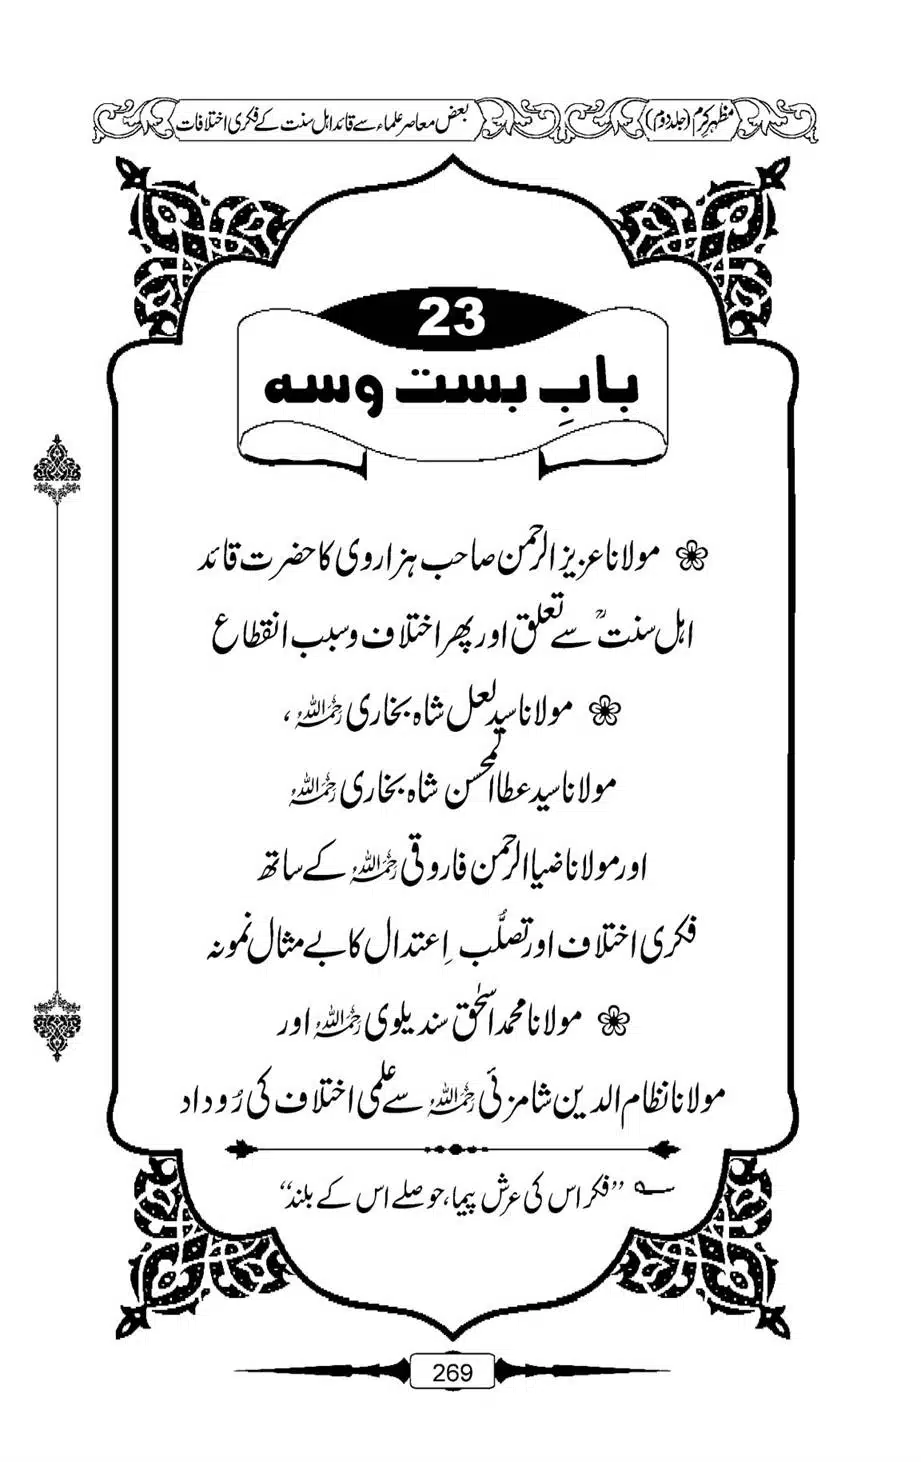 مظہرِ کرم (جلد دوم)
بعض معاصر علماء سے قائد اہل سنت کے فکری اختلافات
23
بابِ بست وسہ
مولانا عزیز الرحمن صاحب ہزاروی کا حضرت قائد
اہل سنتؒ سے تعلق اور پھر اختلاف و سبب انقطاع
مولانا سید لعل شاہ بخاری رحمہ اللہ،
مولانا سید عطا المحسن شاہ بخاری رحمہ اللہ
اور مولانا ضیا الرحمن فاروقی رحمہ اللہ کے ساتھ
فکری اختلاف اور تصلُّب ِاعتدال کا بے مثال نمونہ
مولانا محمد اسحٰق سندیلوی رحمہ اللہ اور
مولانا نظام الدین شامزئی رحمہ اللہ سے علمی اختلاف کی رُوداد
؎ ”فکر اس کی عرش پیما، حوصلے اس کے بلند“
269